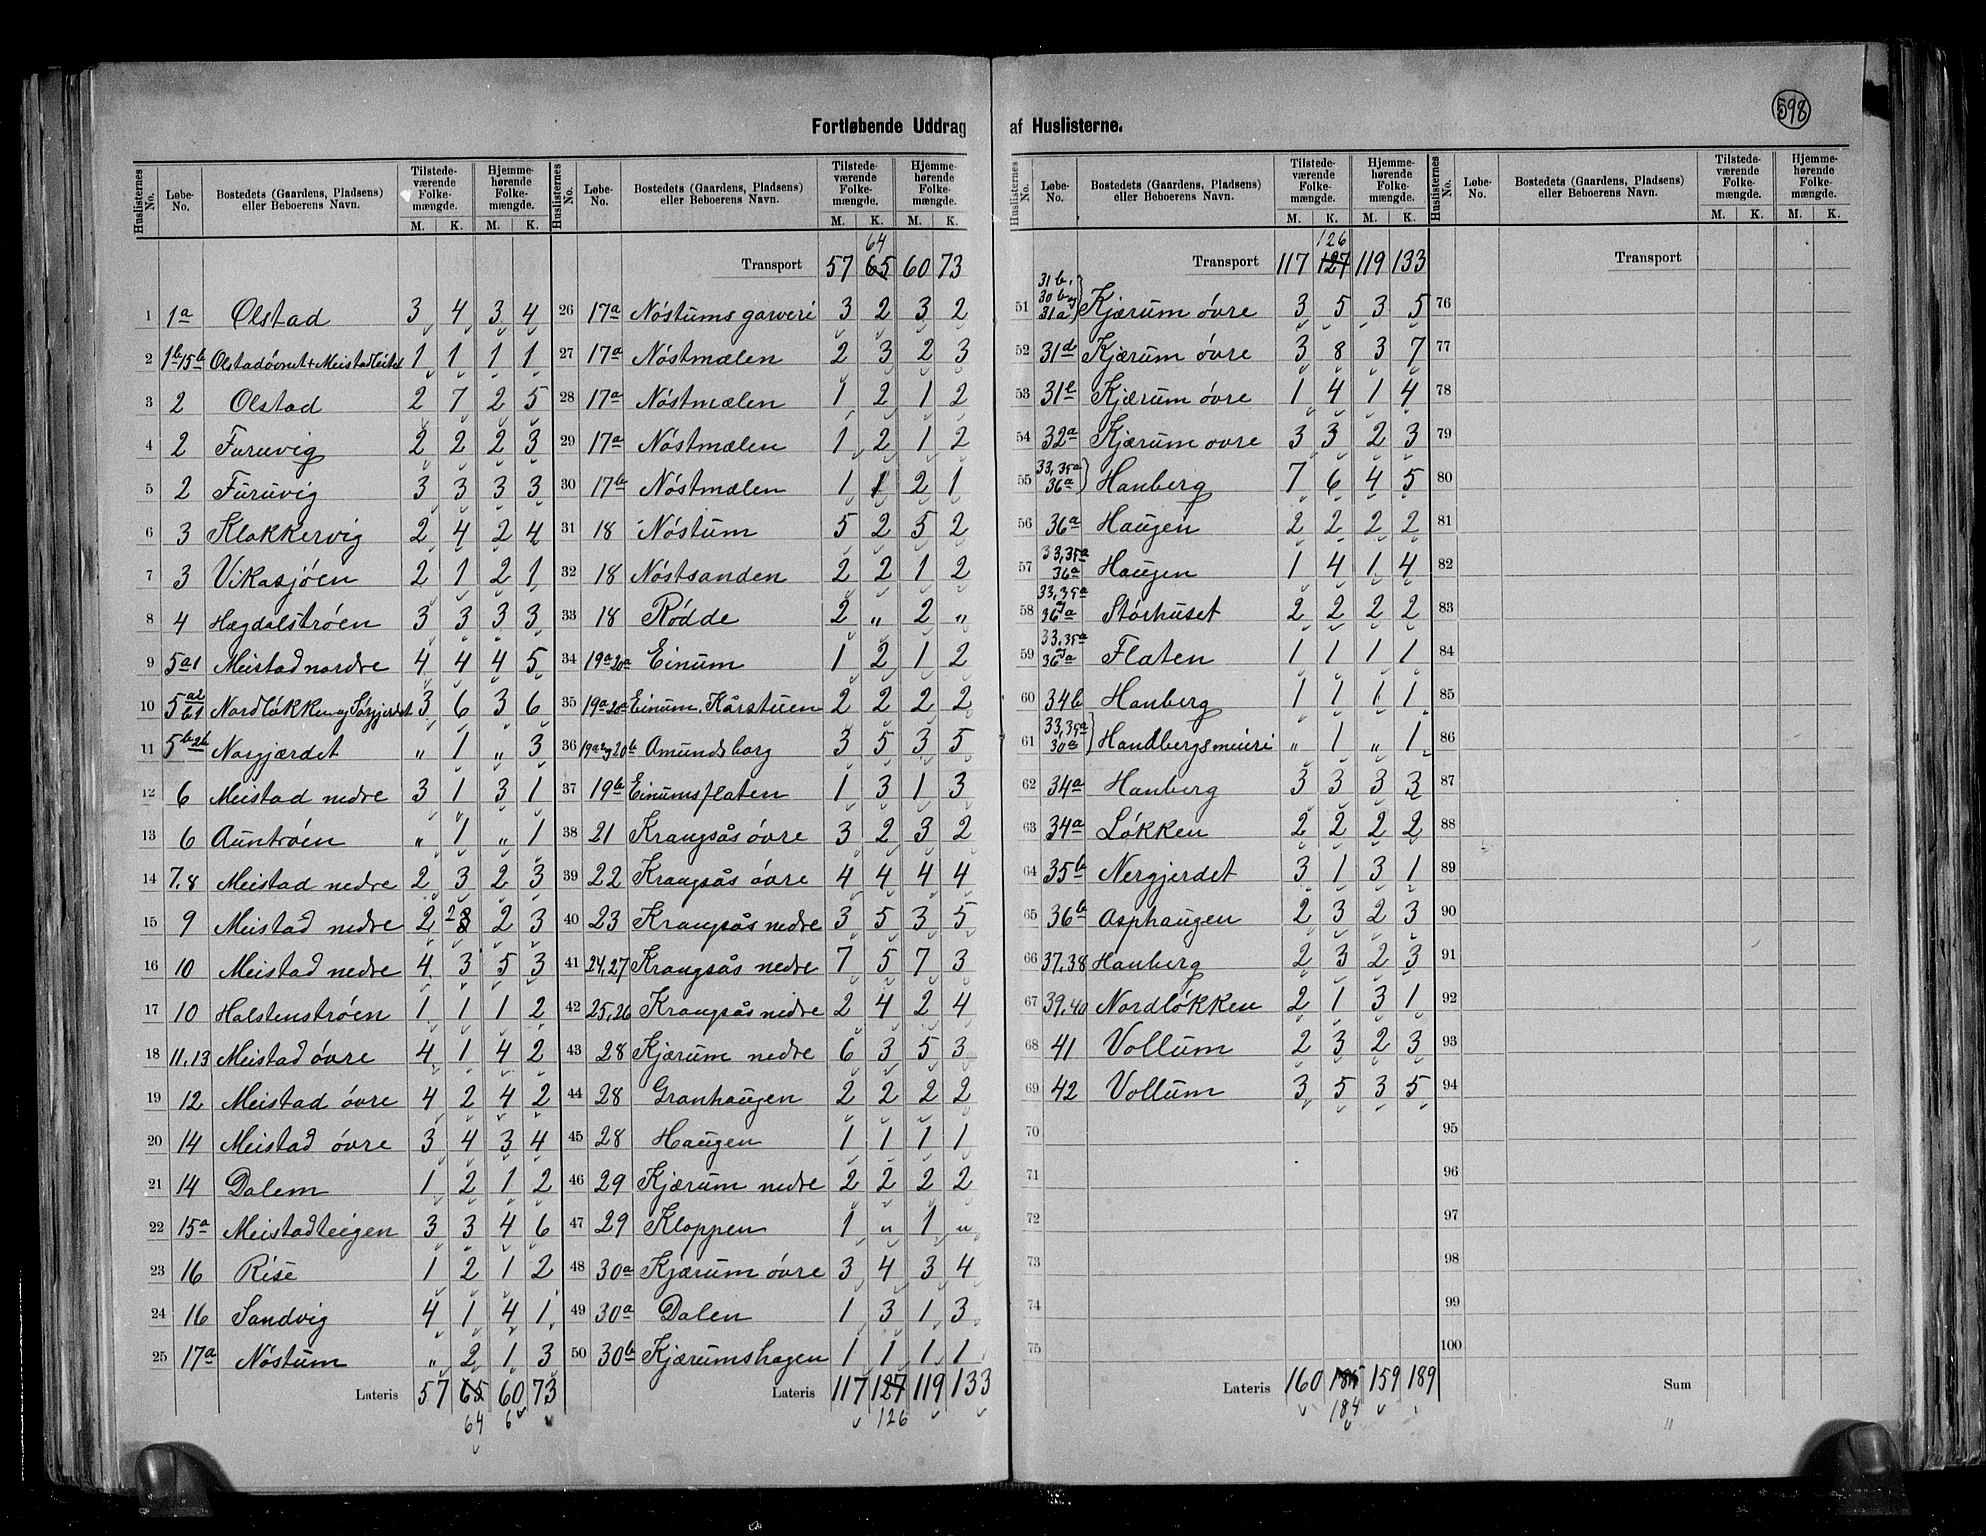 598
Fortløbende Uddrag af Huslisterne.
Huslisternes No. Løbe-No. Bostedets (Gaardens, Pladsens) eller Beboerens Navn. Tilstedeværende Folkemængde. M. K. Hjemmehørende Folkemængde. M. K.
1 1a Olstad 3 4 3 4
2 1b 15b Olstadövnet + Meistadleitet 1 1 1 1
3 2 Olstad 2 7 2 5
4 2 Furuvig 2 2 2 3
5 2 Furuvig 3 3 3 3
6 3 Klokkervig 2 4 2 4
7 3 Vikasjöen 2 1 2 1
8 4 Hægdalströen 3 3 3 3
9 5a1 Meistad nordre 4 4 4 5
10 5a2 b1 Nordløkken og Sörgjerdet 3 6 3 6
11 5b2b Norgjærdet " 1 " 3
12 6 Meistad nedre 3 1 3 1
13 6 Auntröen " 1 " 1
14 7,8 Meistad nedre 2 3 2 3
15 9 Meistad nedre 2 2 2 3
16 10 Meistad nedre 4 3 5 3
17 10 Halstenströen 1 1 1 2
18 11,13 Meistad övre 4 1 4 2
19 12 Meistad övre 4 2 4 2
20 14 Meistad övre 3 4 3 4
21 14 Dalem 1 2 1 2
22 15a Meistadteigen 3 3 4 6
23 16 Rise 1 2 1 2
24 16 Sandvig 4 1 4 1
25 17a Nöstum " 2 1 3
Lateris 57 65 60 73
64 6
Huslisternes No. Løbe-No. Bostedets (Gaardens, Pladsens) eller Beboerens Navn. Tilstedeværende Folkemængde. M. K. Hjemmehørende Folkemængde. M. K.
64
Transport 57 65 60 73
26 17a Nöstums garveri 3 2 3 2
27 17a Nöstmælen 2 3 2 3
28 17a Nöstmælen 1 2 1 2
29 17a Nöstmælen 1 2 1 2
30 17b Nöstmælen 1 1 2 1
31 18 Nöstum 5 2 5 2
32 18 Nöstsanden 2 2 1 2
33 18 Rödde 2 " 2 "
34 19a 20a Einum 1 2 1 2
35 19a 20a Einum, Kårstuen 2 2 2 2
36 19a2 og 20b Amundsborg 3 5 3 5
37 19b Einumsflaten 1 3 1 3
38 21 Krangsås övre 3 2 3 2
39 22 Krangsås övre 4 4 4 4
40 23 Krangsås nedre 3 5 3 5
41 24,27 Krangsås nedre 7 5 7 3
42 25,26 Krangsås nedre 2 4 2 4
43 28 Kjærum nedre 6 3 5 3
44 28 Granhaugen 2 2 2 2
45 28 Haugen 1 1 1 1
46 29 Kjærum nedre 2 2 2 2
47 29 Kloppen 1 " 1 "
48 30a Kjærum övre 3 4 3 4
49 30a Dalen 1 3 1 3
50 30b Kjærumshagen 1 1 1 1
Lateris 117 127 119 133
126
Huslisternes No. Løbe-No. Bostedets (Gaardens, Pladsens) eller Beboerens Navn. Tilstedeværende Folkemængde. M. K. Hjemmehørende Folkemængde. M. K.
126
Transport 117 127 119 133
51 31b, 30b og 31a Kjærum övre 3 5 3 5
52 31d Kjærum övre 3 8 3 7
53 31e Kjærum övre 1 4 1 4
54 32a Kjærum ovre 3 3 2 3
55 33,35a 36a Hanberg 7 6 4 5
56 36a Haugen 2 2 2 2
57 33,35a 36a Haugen 1 4 1 4
58 33,35a og 36a Störhuset 2 2 2 2
59 33,35a og 36a Flaten 1 1 1 1
60 34b Hanberg 1 1 1 1
61 33,35a 30a Handbergsmeieri " 1 " 1
62 34a Hanberg 3 3 3 3
63 34a Lökken 2 2 2 2
64 35b Nergjerdet 3 1 3 1
65 36b Asphaugen 2 3 2 3
66 37,38 Hanberg 2 3 2 3
67 39,40 Nordlökken 2 1 3 1
68 41 Vollum 2 3 2 3
69 42 Vollum 3 5 3 5
70
71
72
73
74
75
Lateris 160 185 159 189
184
Huslisternes No. Løbe-No. Bostedets (Gaardens, Pladsens) eller Beboerens Navn. Tilstedeværende Folkemængde. M. K. Hjemmehørende Folkemængde. M. K.
Transport
76
77
78
79
80
81
82
83
84
85
86
87
88
89
90
91
92
93
94
95
96
97
98
99
100
Sum
"